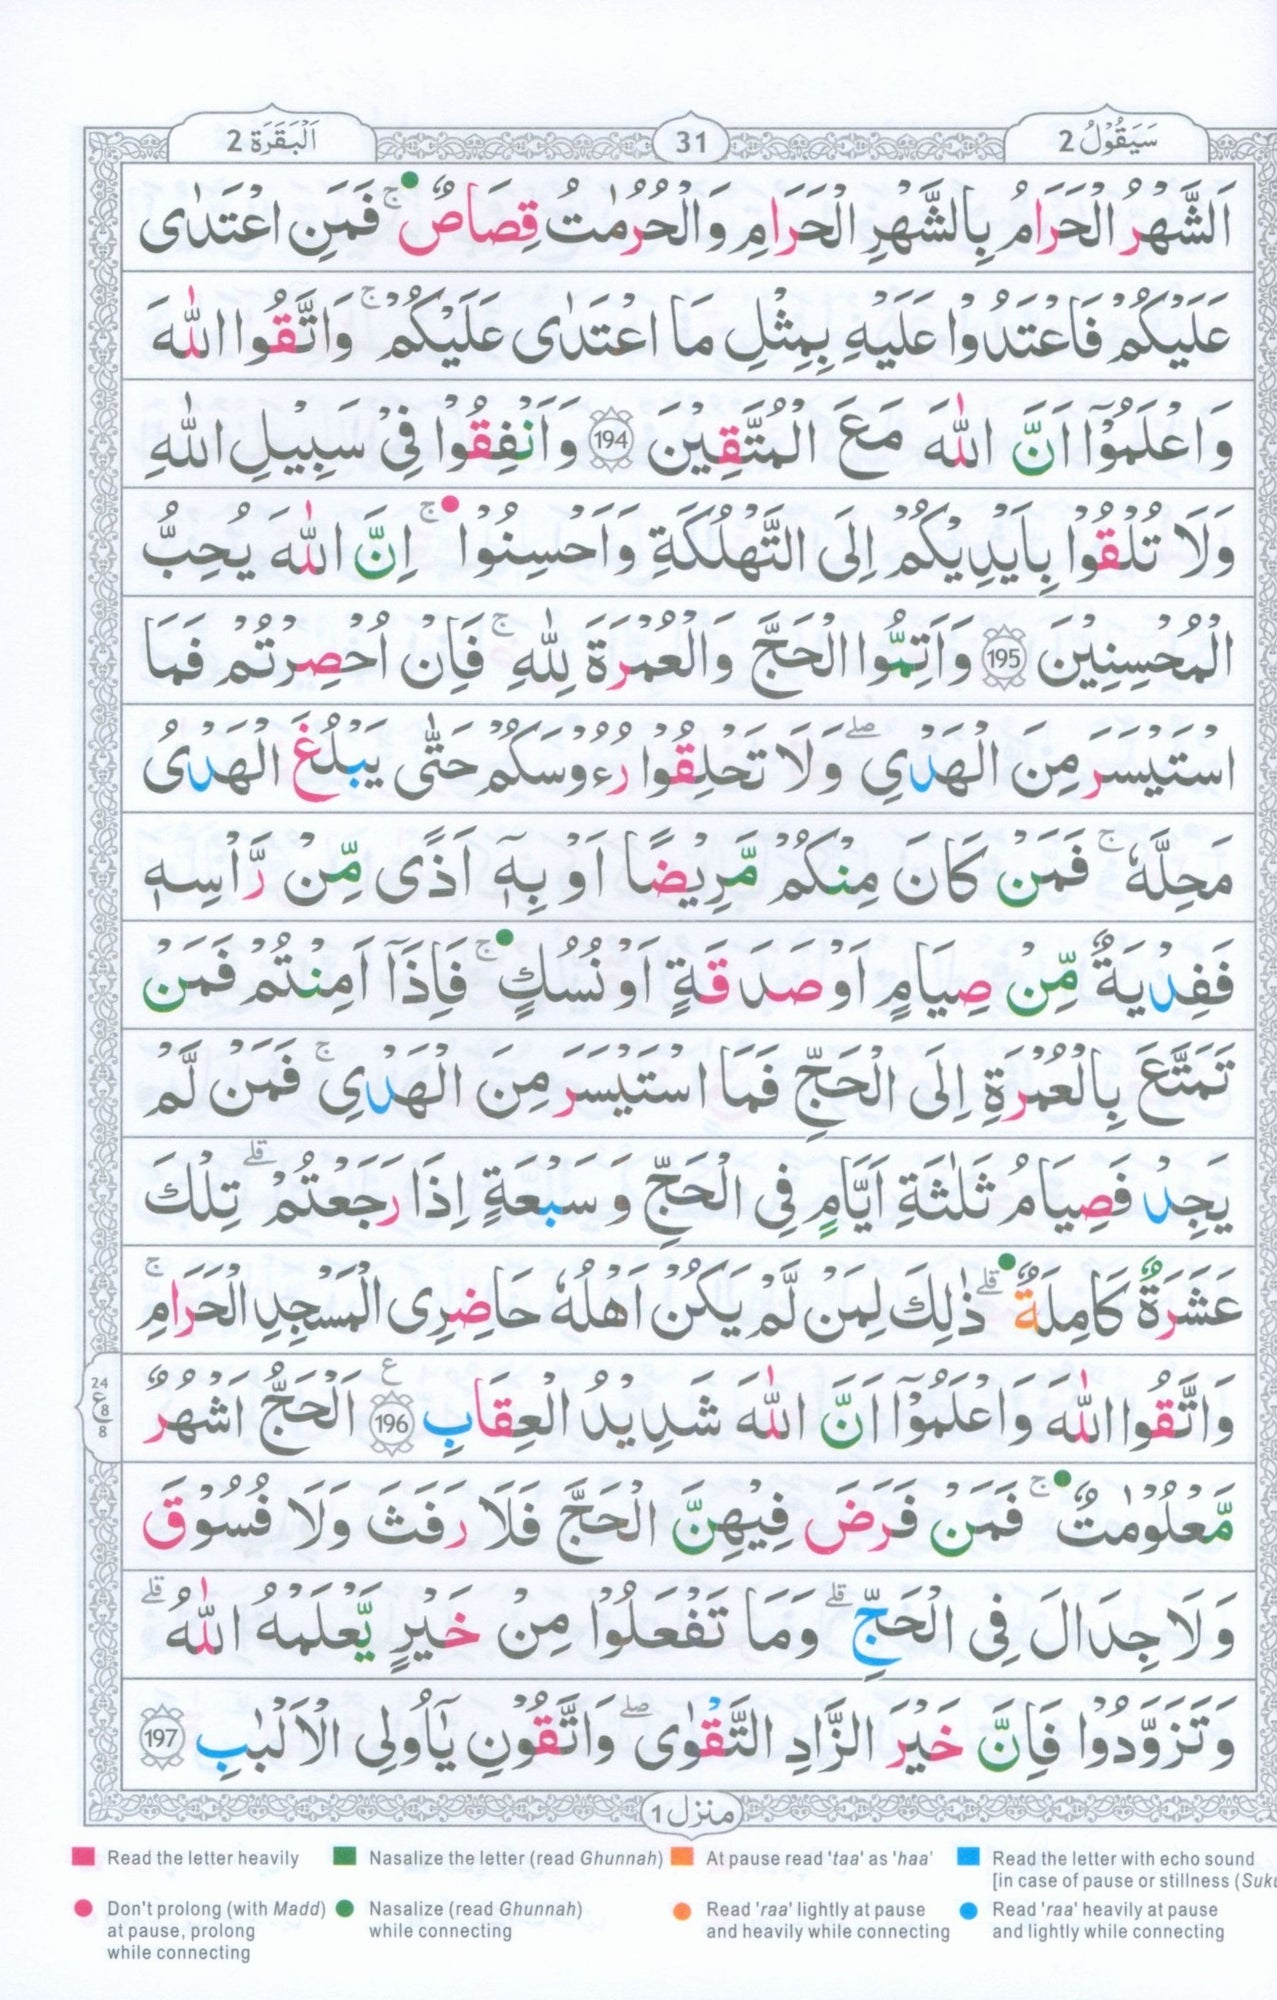 سَيَقُوۡلُ 2
31
اَلۡبَقَرَة 2
اَلشَّهۡرُ الۡحَرَامُ بِالشَّهۡرِ الۡحَرَامِ وَالۡحُرُمٰتُ قِصَاصٌ ؕ ۚ فَمَنِ اعۡتَدٰى
عَلَيۡكُمۡ فَاعۡتَدُوۡا عَلَيۡهِ بِمِثۡلِ مَا اعۡتَدٰى عَلَيۡكُمۡ ۚ وَاتَّقُوا اللّٰهَ
وَاعۡلَمُوۡٓا اَنَّ اللّٰهَ مَعَ الۡمُتَّقِيۡنَ 194 وَاَنۡفِقُوۡا فِىۡ سَبِيۡلِ اللّٰهِ
وَلَا تُلۡقُوۡا بِاَيۡدِيۡكُمۡ اِلَى التَّهۡلُكَةِ وَاَحۡسِنُوۡا ۚ اِنَّ اللّٰهَ يُحِبُّ
الۡمُحۡسِنِيۡنَ 195 وَاَتِمُّوا الۡحَجَّ وَالۡعُمۡرَةَ لِلّٰهِ ۚ فَاِنۡ اُحۡصِرۡتُمۡ فَمَا
اسۡتَيۡسَرَ مِنَ الۡهَدۡىِ ۖ وَلَا تَحۡلِقُوۡا رُءُوۡسَكُمۡ حَتّٰى يَبۡلُغَ الۡهَدۡىُ
مَحِلَّهٗ ۚ فَمَنۡ كَانَ مِنۡكُمۡ مَّرِيۡضًا اَوۡ بِهٖٓ اَذًى مِّنۡ رَّاۡسِهٖ
فَفِدۡيَةٌ مِّنۡ صِيَامٍ اَوۡ صَدَقَةٍ اَوۡ نُسُكٍ ۚ فَاِذَآ اَمِنۡتُمۡ فَمَنۡ
تَمَتَّعَ بِالۡعُمۡرَةِ اِلَى الۡحَجِّ فَمَا اسۡتَيۡسَرَ مِنَ الۡهَدۡىِ ۚ فَمَنۡ لَّمۡ
يَجِدۡ فَصِيَامُ ثَلٰثَةِ اَيَّامٍ فِى الۡحَجِّ وَسَبۡعَةٍ اِذَا رَجَعۡتُمۡ ۗ تِلۡكَ
عَشَرَةٌ كَامِلَةٌ ۗ ذٰلِكَ لِمَنۡ لَّمۡ يَكُنۡ اَهۡلُهٗ حَاضِرِى الۡمَسۡجِدِ الۡحَرَامِ ۚ
وَاتَّقُوا اللّٰهَ وَاعۡلَمُوۡٓا اَنَّ اللّٰهَ شَدِيۡدُ الۡعِقَابِ 196 ع اَلۡحَجُّ اَشۡهُرٌ
24
ع 8
8
مَّعۡلُوۡمٰتٌ ۚ فَمَنۡ فَرَضَ فِيۡهِنَّ الۡحَجَّ فَلَا رَفَثَ وَلَا فُسُوۡقَ
وَلَا جِدَالَ فِى الۡحَجِّ ۗ وَمَا تَفۡعَلُوۡا مِنۡ خَيۡرٍ يَّعۡلَمۡهُ اللّٰهُ ۗ
وَتَزَوَّدُوۡا فَاِنَّ خَيۡرَ الزَّادِ التَّقۡوٰى ۖ وَاتَّقُوۡنِ يٰٓاُولِى الۡاَلۡبَابِ 197
منزل 1
Read the letter heavily
Nasalize the letter (read Ghunnah)
At pause read 'taa' as 'haa'
Read the letter with echo sound
[in case of pause or stillness (Suku
Don't prolong (with Madd)
at pause, prolong
while connecting
Nasalize (read Ghunnah)
while connecting
Read 'raa' lightly at pause
and heavily while connecting
Read 'raa' heavily at pause
and lightly while connecting